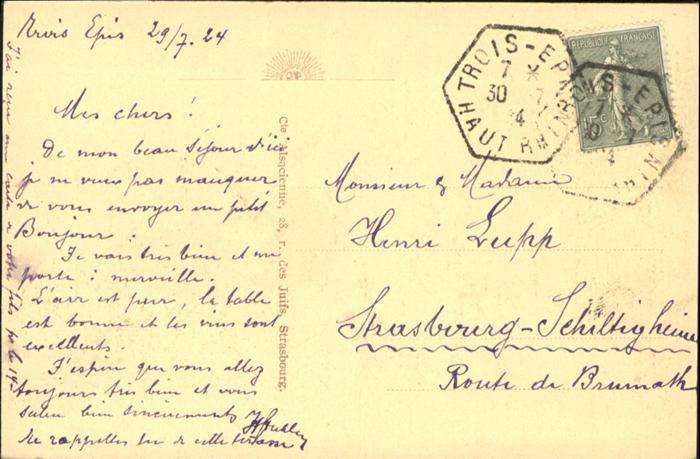 Trois Epis 29/7.24
Mes chers!
De mon beau séjour d'ici
je ne veux pas manquer
de vous envoyer un petit
Bonjour.
Je vais très bien et me
porte à merveille.
L'air est pur, la table
est bonne et les vins sont
excellents.
J'espère que vous allez
toujours très bien et vous
salue bien sincèrement
de cette terrasse
J'ai reçu une carte de votre fils
Cie Alsacienne, 28, r. des Juifs, Strasbourg.
TROIS-EPIS
7 *
30 7
4
HAUT RHIN
REPUBLIQUE FRANÇAISE
15c
Monsieur & Madame
Henri Lupp
Strasbourg-Schiltigheim
Route de Brumath